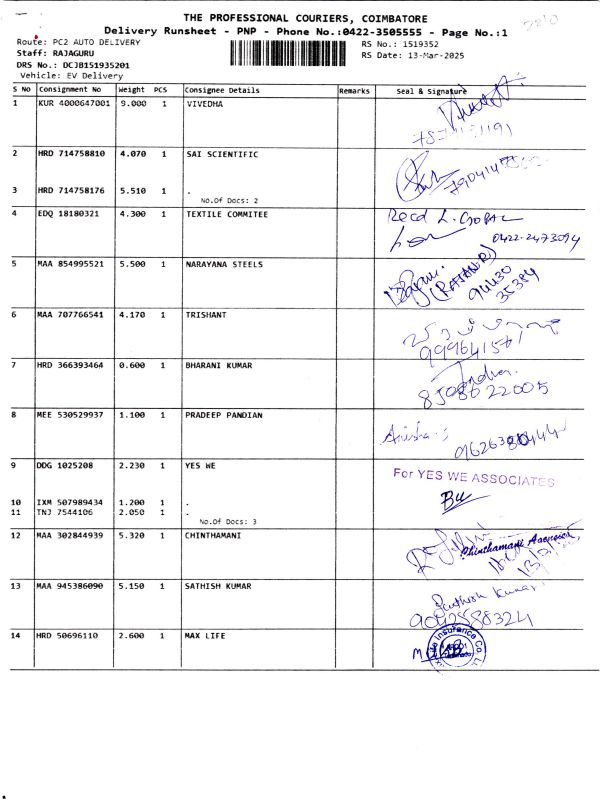 THE PROFESSIONAL COURIERS, COIMBATORE
Delivery Runsheet - PNP - Phone No.:0422-3505555 - Page No.:1
Route: PC2 AUTO DELIVERY
RS No.: 1519352
Staff: RAJAGURU
RS Date: 13-Mar-2025
DRS No.: DCJB151935201
Vehicle: EV Delivery
S No Consignment No Weight PCS Consignee Details Remarks Seal & Signature
1 KUR 4000647001 9.000 1 VIVEDHA
2 HRD 714758810 4.070 1 SAI SCIENTIFIC
3 HRD 714758176 5.510 1 .
No.Of Docs: 2
4 EDQ 18180321 4.300 1 TEXTILE COMMITEE Recd L. GOPAL
0422-2473094
5 MAA 854995521 5.500 1 NARAYANA STEELS
(RAJAN.R)
94430
35384
6 MAA 707766541 4.170 1 TRISHANT
7 HRD 366393464 0.600 1 BHARANI KUMAR
8 MEE 530529937 1.100 1 PRADEEP PANDIAN
9 DDG 1025208 2.230 1 YES WE For YES WE ASSOCIATES
10 IXM 507989434 1.200 1 .
11 TNJ 7544106 2.050 1 .
No.Of Docs: 3
12 MAA 302844939 5.320 1 CHINTHAMANI
13 MAA 945386090 5.150 1 SATHISH KUMAR Sathish Kumar
14 HRD 50696110 2.600 1 MAX LIFE